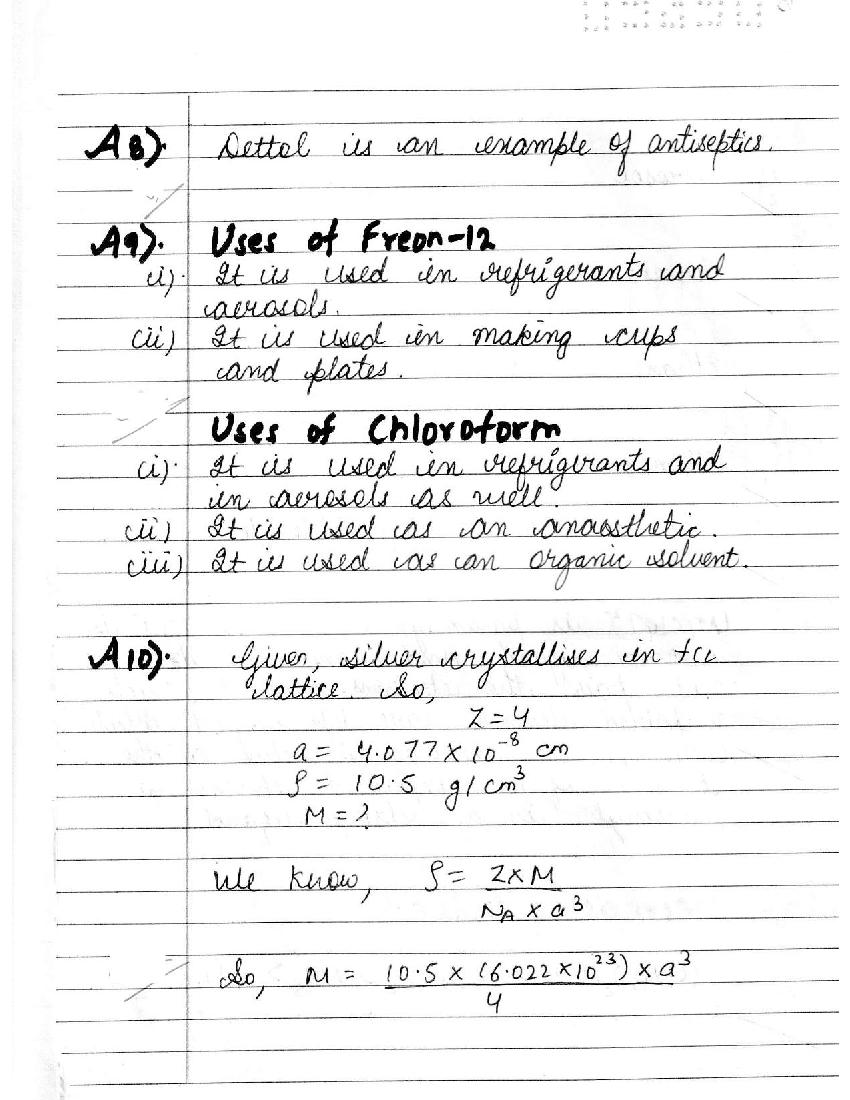 A8). Dettol is an example of antiseptics.
A9). Uses of Freon-12
(i). It is used in refrigerants and
aerosols.
(ii) It is used in making cups
and plates.
Uses of Chloroform
(i). It is used in refrigirants and
in aerosols as well.
(ii) It is used as an anaesthetic.
(iii) It is used as an organic solvent.
A10). Given, silver crystallises in fcc
lattice. So,
Z = 4
a = 4.077 × 10⁻⁸ cm
ρ = 10.5 g/cm³
M = ?
We know, ρ = Z×M
N_A × a³
So, M = 10.5 × (6.022 × 10²³) × a³
4